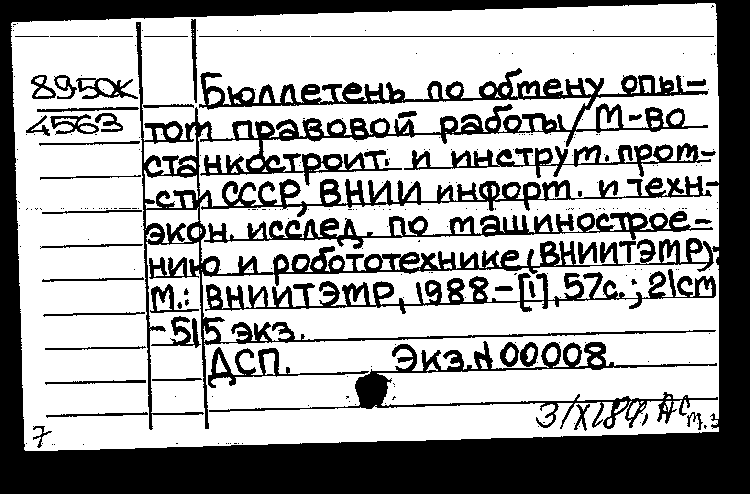 8950к Бюллетень по обмену опы-
4563 том правовой работы / М-во
станкостроит. и инструм. пром-
-сти СССР, ВНИИ информ. и техн.-
экон. исслед. по машинострое-
нию и робототехнике (ВНИИТЭМР).
М.: ВНИИТЭМР, 1988.-[1], 57с.; 21см
-515 экз.
ДСП. Экз.N 00008.
7